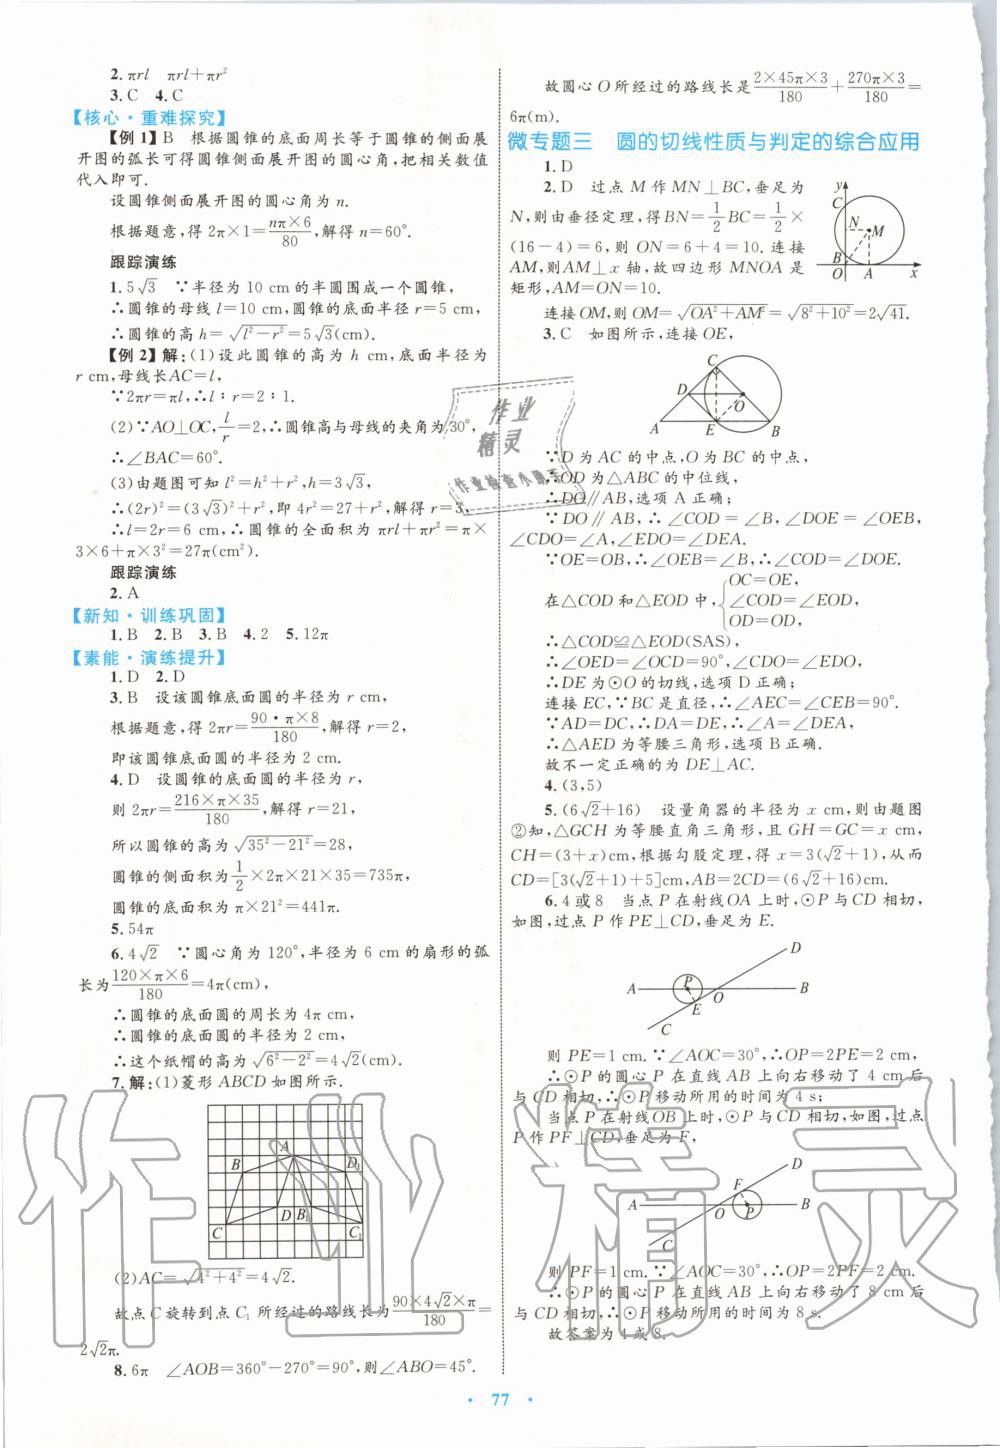 2. πrl　πrl+πr²
3. C　4. C
【核心·重难探究】
【例 1】B　根据圆锥的底面周长等于圆锥的侧面展
开图的弧长可得圆锥侧面展开图的圆心角,把相关数值
代入即可.
设圆锥侧面展开图的圆心角为 n.
根据题意,得 2π×1=nπ×6/80,解得 n=60°.
跟踪演练
1. 5√3　∵半径为 10 cm 的半圆围成一个圆锥,
∴圆锥的母线 l=10 cm,圆锥的底面半径 r=5 cm,
∴圆锥的高 h=√(l²−r²)=5√3(cm).
【例 2】解:(1)设此圆锥的高为 h cm,底面半径为
r cm,母线长AC=l,
∵2πr=πl,∴l∶r=2∶1.
(2)∵AO⊥OC,l/r=2,∴圆锥高与母线的夹角为30°,
∴∠BAC=60°.
(3)由题图可知 l²=h²+r²,h=3√3,
∴(2r)²=(3√3)²+r²,即 4r²=27+r²,解得 r=3,
∴l=2r=6 cm,∴圆锥的全面积为 πrl+πr²=π×
3×6+π×3²=27π(cm²).
跟踪演练
2. A
【新知·训练巩固】
1. B　2. B　3. B　4. 2　5. 12π
【素能·演练提升】
1. D　2. D
3. B　设该圆锥底面圆的半径为 r cm,
根据题意,得 2πr=90·π×8/180,解得 r=2,
即该圆锥底面圆的半径为 2 cm.
4. D　设圆锥的底面圆的半径为 r,
则 2πr=216×π×35/180,解得 r=21,
所以圆锥的高为√(35²−21²)=28,
圆锥的侧面积为1/2×2π×21×35=735π,
圆锥的底面积为 π×21²=441π.
5. 54π
6. 4√2　∵圆心角为 120°,半径为 6 cm 的扇形的弧
长为120×π×6/180=4π(cm),
∴圆锥的底面圆的周长为 4π cm,
∴圆锥的底面圆的半径为 2 cm,
∴这个纸帽的高为√(6²−2²)=4√2(cm).
7. 解:(1)菱形 ABCD 如图所示.
A
B
D₁
D
B₁
C
C₁
(2)AC=√(4²+4²)=4√2.
故点 C 旋转到点 C₁ 所经过的路线长为90×4√2×π/180=
2√2π.
8. 6π　∠AOB=360°−270°=90°,则∠ABO=45°.
故圆心 O 所经过的路线长是2×45π×3/180+270π×3/180=
6π(m).
微专题三　圆的切线性质与判定的综合应用
1. D
2. D　过点 M 作 MN⊥BC,垂足为
N,则由垂径定理,得 BN=1/2BC=1/2×
(16−4)=6,则 ON=6+4=10. 连接
AM,则AM⊥x 轴,故四边形 MNOA 是
矩形,AM=ON=10.
y
C
N
M
B
O
A
x
连接OM,则OM=√(OA²+AM²)=√(8²+10²)=2√41.
3. C　如图所示,连接OE,
C
D
O
A
E
B
∵D 为 AC 的中点,O 为 BC 的中点,
∴OD 为△ABC 的中位线,
∴DO∥AB,选项 A 正确;
∵DO∥AB,∴∠COD=∠B,∠DOE=∠OEB,
∠CDO=∠A,∠EDO=∠DEA.
∵OE=OB,∴∠OEB=∠B,∴∠COD=∠DOE.
在△COD 和△EOD 中,{OC=OE,
∠COD=∠EOD,
OD=OD,
∴△COD≌△EOD(SAS),
∴∠OED=∠OCD=90°,∠CDO=∠EDO,
∴DE 为⊙O 的切线,选项 D 正确;
连接 EC,∵BC 是直径,∴∠AEC=∠CEB=90°.
∵AD=DC,∴DA=DE,∴∠A=∠DEA,
∴△AED 为等腰三角形,选项 B 正确.
故不一定正确的为 DE⊥AC.
4. (3,5)
5. (6√2+16)　设量角器的半径为 x cm,则由题图
②知,△GCH 为等腰直角三角形,且 GH=GC=x cm,
CH=(3+x)cm,根据勾股定理,得 x=3(√2+1),从而
CD=[3(√2+1)+5]cm,AB=2CD=(6√2+16)cm.
6. 4 或 8　当点 P 在射线OA 上时,⊙P 与 CD 相切,
如图,过点 P 作 PE⊥CD,垂足为 E.
D
A
P
O
B
E
C
则 PE=1 cm. ∵∠AOC=30°,∴OP=2PE=2 cm,
∴⊙P 的圆心 P 在直线 AB 上向右移动了 4 cm 后
与 CD 相切,∴⊙P 移动所用的时间为 4 s;
当点 P 在射线OB 上时,⊙P 与 CD 相切,如图,过点
P 作 PF⊥CD,垂足为 F,
D
F
A
O
P
B
C
则 PF=1 cm. ∵∠AOC=30°,∴OP=2PF=2 cm.
∴⊙P 的圆心 P 在直线 AB 上向右移动了 8 cm 后
与 CD 相切,∴⊙P 移动所用的时间为 8 s.
故答案为 4 或 8.
· 77 ·
作业
精灵
作业检查小助手
作业精灵